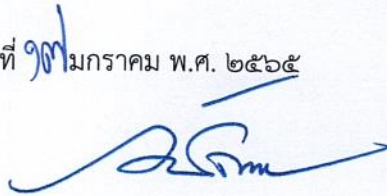 ที่ ๑๗ มกราคม พ.ศ. ๒๕๖๕